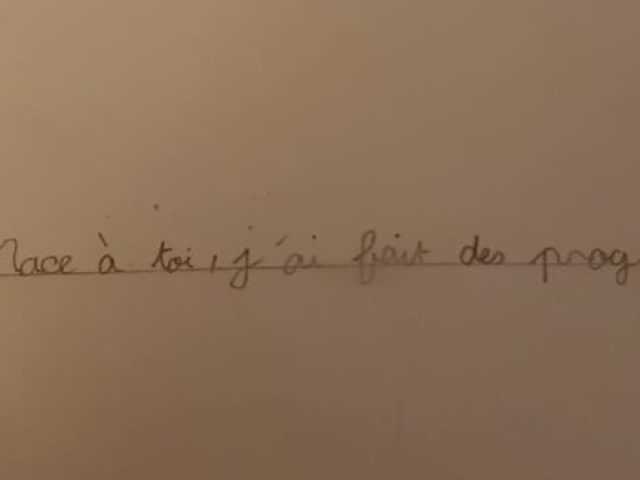 race à toi, j'ai fait des prog